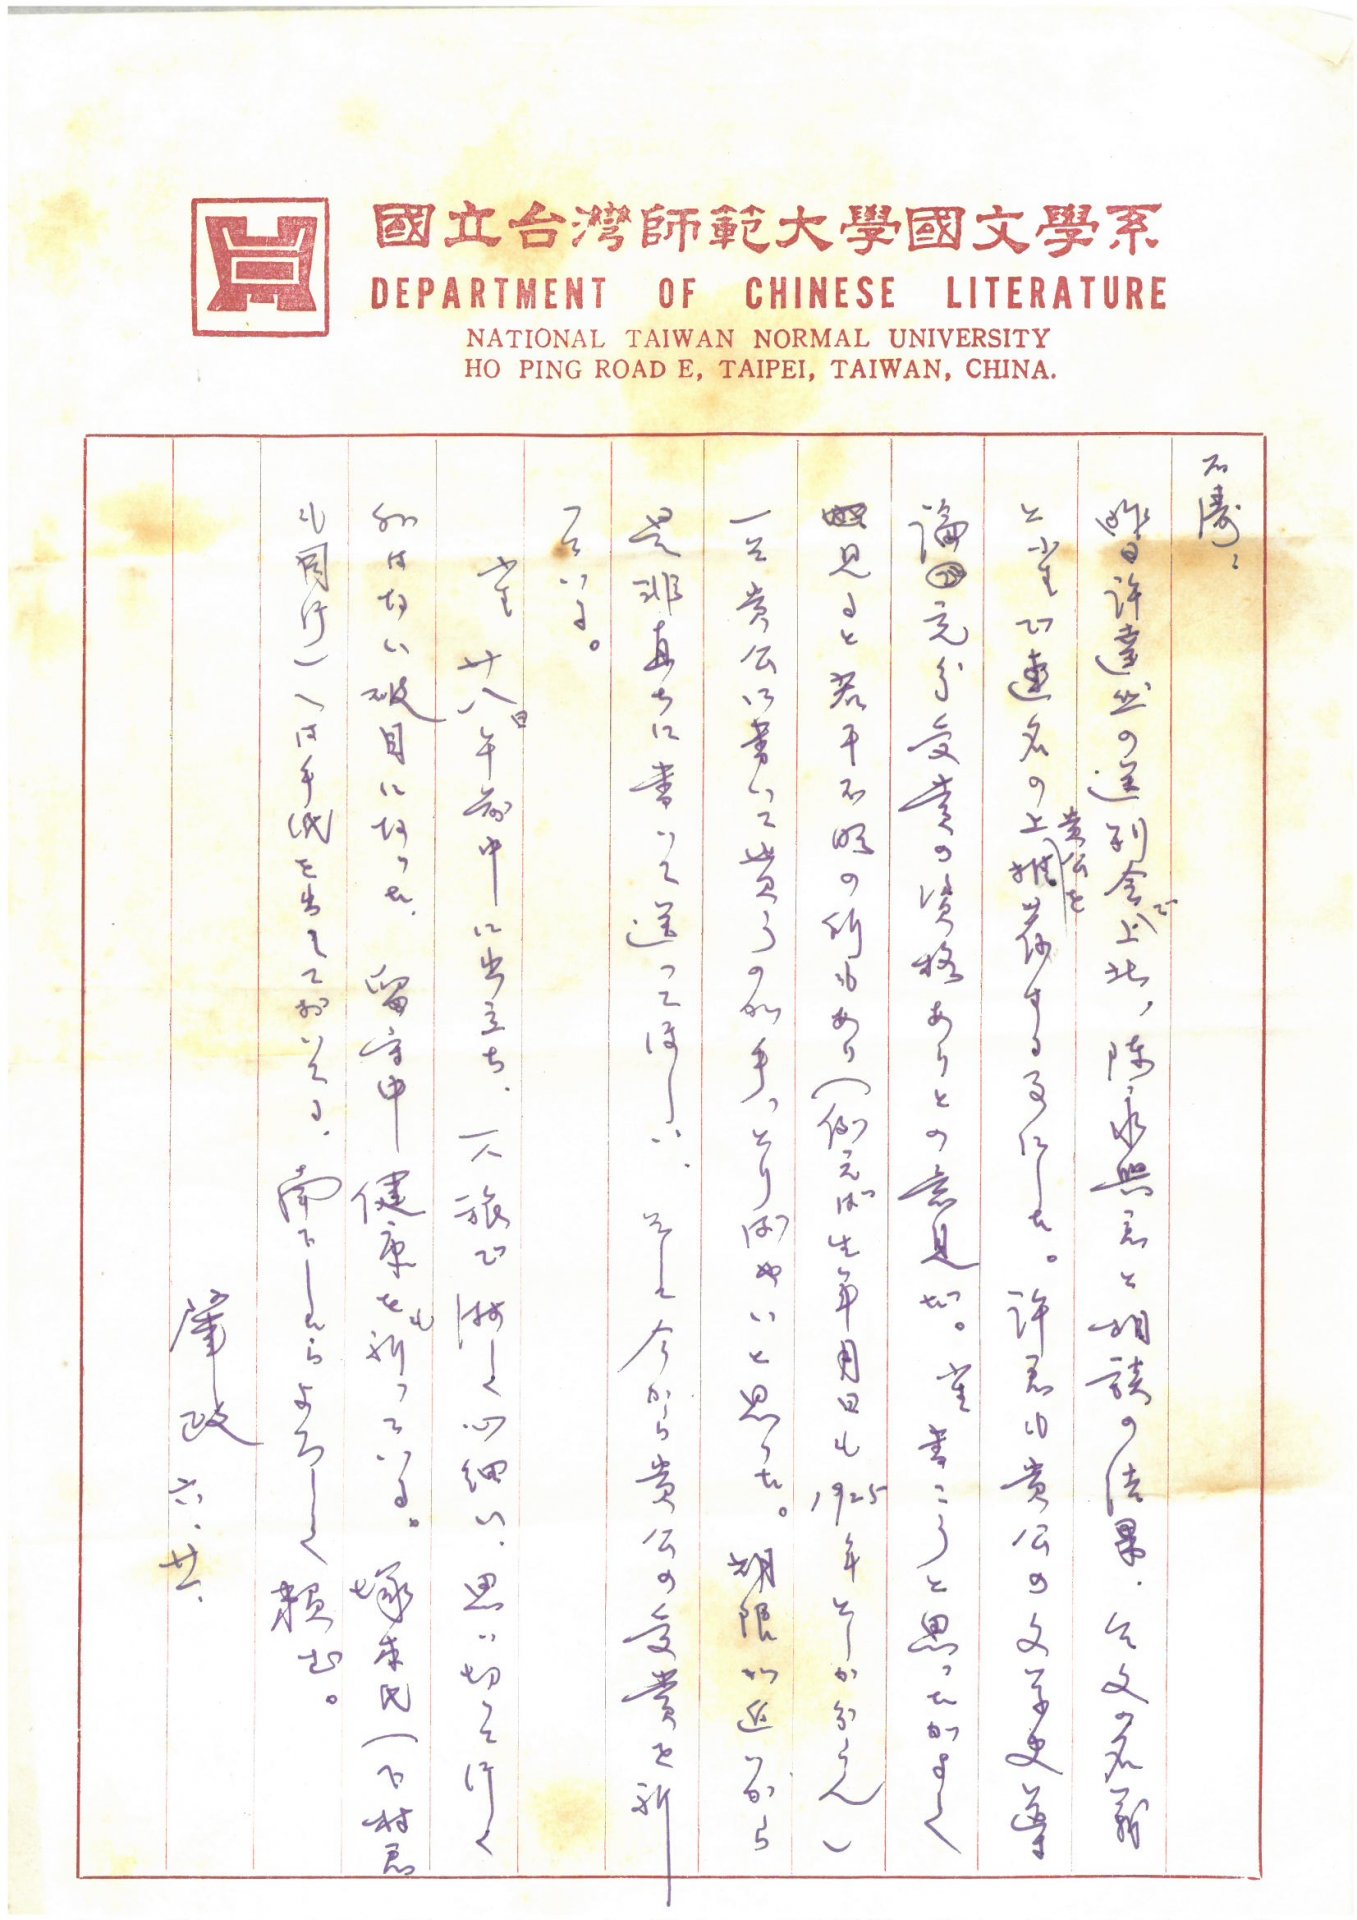 國立台灣師範大學國文學系
DEPARTMENT OF CHINESE LITERATURE
NATIONAL TAIWAN NORMAL UNIVERSITY
HO PING ROAD E, TAIPEI, TAIWAN, CHINA.
石濤：
昨日許達然の送別会で上北、陳永興君と相談の結果、台文の名義
と小生で連名の上貴公を推荐する事にした。許君も貴公の文学史並
論充分受賞の資格ありとの意見だ。小生書こうと思ったがよく
見ると若干不明の所もあり（例えば生年月日も1925年としか分らん）
一そ貴公に書いて貰うのが手っとりばやいと思った。期限が近いから
是非直ちに書いて送ってほしい、そして今から貴公の受賞を祈
っている。
小生廿八日午前中に出立ち、一人旅で淋しく心細い、思い切って行く
外はない破目になった、留守中健康をも祈っている。塚本氏（下村君
も同行）へは手紙を出しておいてる、南下したらよろしく頼む。
肇政 六、廿一、